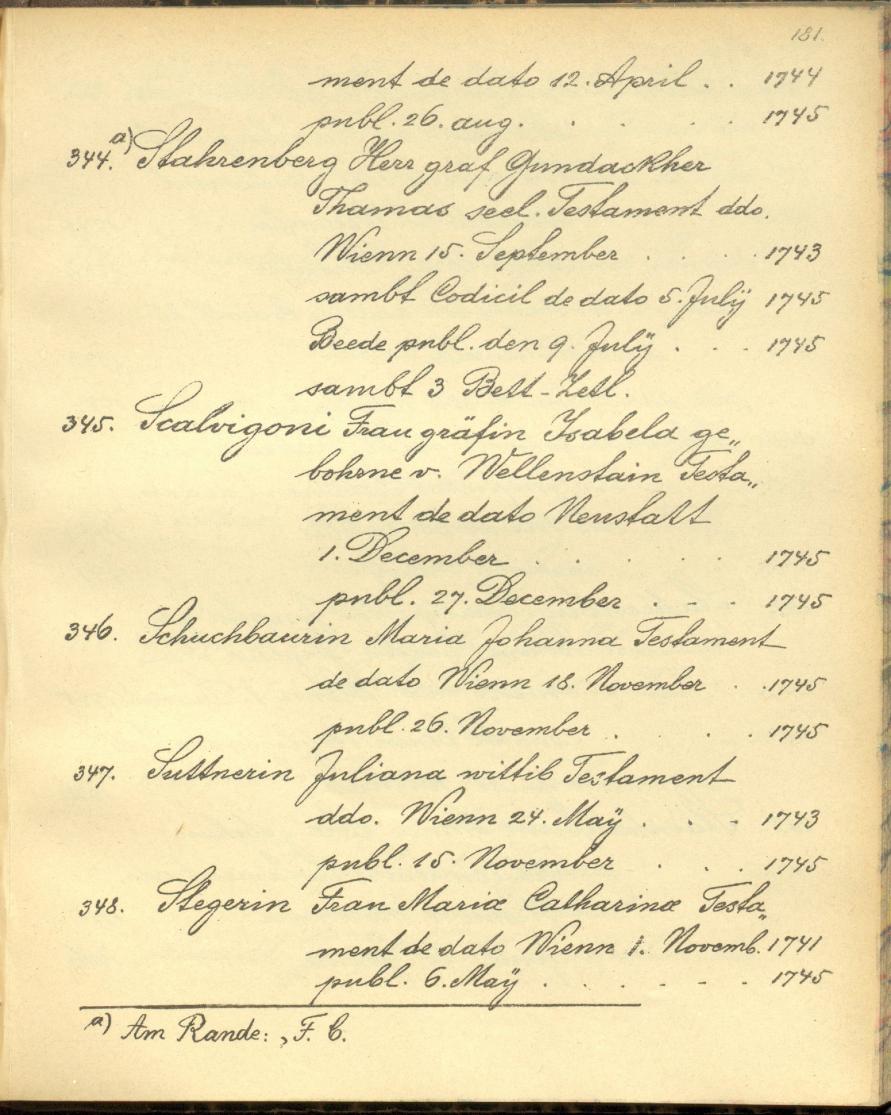 181.
ment de dato 12. April . . 1744
publ. 26. aug. . . . . 1745
344.a) Stahrenberg Herr graf Gundackher
Thamas seel. Testament ddo.
Wienn 15. September . . . . 1743
sambt Codicil de dato 5. Julÿ 1745
Beede publ. den 9. Julÿ . . . 1745
sambt 3 Bett-Zetl.
345. Scalvigoni Frau gräfin Isabela ge„
bohrne v. Wellenstain Testa„
ment de dato Neustatt
1. December . . . . 1745
publ. 27. December . . . 1745
346. Schuchbaurin Maria Johanna Testament
de dato Wienn 18. November . . 1745
publ. 26. November . . . . 1745
347. Suttnerin Juliana wittib Testament
ddo. Wienn 24. Maÿ . . . 1743
publ. 15. November . . . 1745
348. Stegerin Frau Mariæ Catharinæ Testa„
ment de dato Wienn 1. Novemb. 1741
publ. 6. Maÿ . . . . . . 1745
a) Am Rande: ‚F. C.